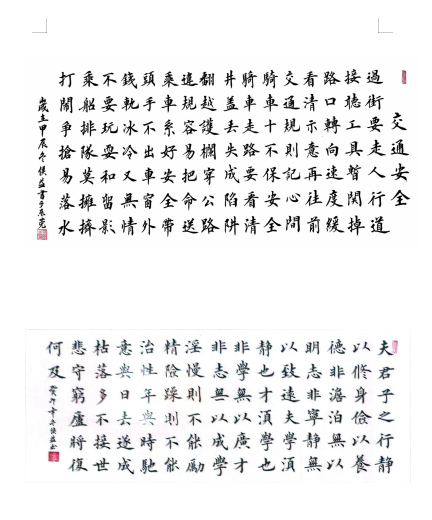 交通安全
過街要走人行道
接聽工具暫関掉
路口轉向速度緩
看清示意再往前
交通規則記心間
騎車十不保安全
騎車走路要看清
井盖丢失成陷阱
翻越護欄穿公路
違規容易把命送
乘車系好安全帶
頭手不出車窗外
錢軌冰冷又無情
不要玩耍和留影
乘船排隊莫擁擠
打鬧爭搶易落水
歲在甲辰冬侯益書于东莞
夫君子之行靜
以修身儉以養
德非澹泊無以
明志非寧靜無
以致遠夫學須
靜也才須學也
非學無以廣才
非志無以成學
淫慢則不能勵
精險躁則不能
治性年與時馳
意與日去遂成
枯落多不接世
悲守窮廬將復
何及
冬侯益书